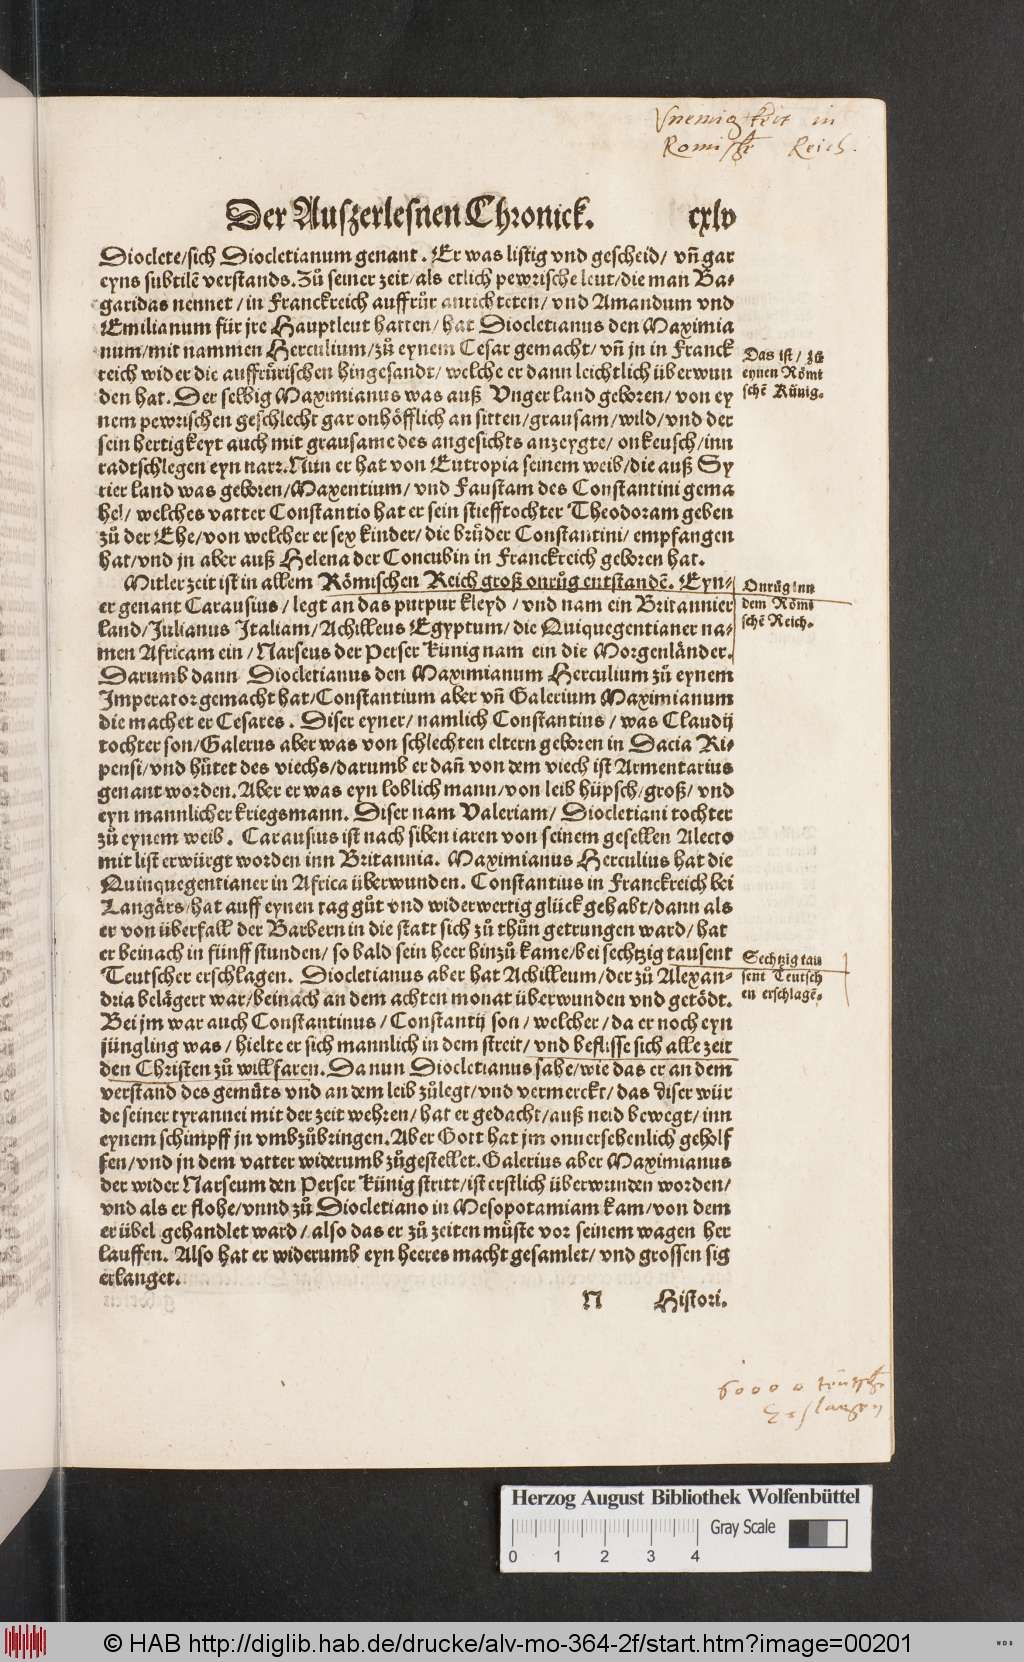 Vneinigkeit in
Romische Reich.
Der Auszerlesnen Chronick. cxlv
Dioclete/sich Diocletianum genant. Er was listig vnd gescheid/ vñ gar
eyns subtilẽ verstands. Zů seiner zeit/als etlich pewrische leut/die man Ba-
garidas nennet/in Franckreich auffrůr anrichteten/vnd Amandum vnd
Emilianum für jre Hauptleut hatten/hat Diocletianus den Maximia
num/mit nammen Herculium/zů eynem Cesar gemacht/vñ jn in Franck
reich wider die auffrůrischen hingesandt/welche er dann leichtlich überwun
den hat. Der selbig Maximianus was auß Vnger land geboren/von ey
nem pewrischen geschlecht gar onhöfflich an sitten/grausam/wild/vnd der
sein hertigkeyt auch mit grausame des angesichts anzeygte/onkeusch/inn
radtschlegen eyn narr. Nun er hat von Eutropia seinem weib/die auß Sy
rier land was geboren/Maxentium/vnd Faustam des Constantini gema
hel/welches vatter Constantio hat er sein stiefftochter Theodoram geben
zů der Ehe/von welcher er sex kinder/die brůder Constantini/empfangen
hat/vnd jn aber auß Helena der Concubin in Franckreich geboren hat.
Das ist/ zů
eynen Römi
schẽ Künig.
Mitler zeit ist in allem Römischen Reich groß onrůg entstandẽ. Eyn-
er genant Carausius/legt an das purpur kleyd/vnd nam ein Britannier
land/Julianus Italiam/Achilleus Egyptum/die Quiquegentianer na-
men Africam ein/Narseus der Perser künig nam ein die Morgenländer.
Darumb dann Diocletianus den Maximianum Herculium zů eynem
Imperator gemacht hat/Constantium aber vñ Galerium Maximianum
die machet er Cesares. Diser eyner/namlich Constantius/was Claudij
tochter son/Galerus aber was von schlechten eltern geboren in Dacia Ri-
pensi/vnd hůtet des viechs/darumb er dañ von dem viech ist Armentarius
genant worden. Aber er was eyn loblich mann/von leib hüpsch/groß/vnd
eyn mannlicher kriegsmann. Diser nam Valeriam/Diocletiani tochter
zů eynem weib. Carausius ist nach siben iaren von seinem gesellen Alecto
mit list erwürgt worden inn Britannia. Maximianus Herculius hat die
Quinquegentianer in Africa überwunden. Constantius in Franckreich bei
Langärs/hat auff eynen tag gůt vnd widerwertig glück gehabt/dann als
er von überfall der Barbern in die statt sich zů thůn getrungen ward/hat
er beinach in fünff stunden/so bald sein heer hinzů kame/bei sechtzig tausent
Teutscher erschlagen. Diocletianus aber hat Achilleum/der zů Alexan-
dria belägert war/beinach an dem achten monat überwunden vnd getödt.
Bei jm war auch Constantinus/Constantij son/welcher/da er noch eyn
jüngling was/hielte er sich mannlich in dem streit/vnd beflisse sich alle zeit
den Christen zů willfaren. Da nun Diocletianus sahe/wie das er an dem
verstand des gemůts vnd an dem leib zůlegt/vnd vermerckt/das diser wür
de seiner tyrannei mit der zeit wehren/hat er gedacht/auß neid bewegt/inn
eynem schimpff jn vmbzůbringen. Aber Gott hat jm onuersehenlich geholf
fen/vnd jn dem vatter widerumb zůgestellet. Galerius aber Maximianus
der wider Narseum den Perser künig stritt/ist erstlich überwunden worden/
vnd als er flohe/vnnd zů Diocletiano in Mesopotamiam kam/von dem
er übel gehandlet ward/also das er zů zeiten můste vor seinem wagen her
lauffen. Also hat er widerumb eyn heeres macht gesamlet/vnd grossen sig
erlanget.
Onrůg inn
dem Römi
schẽ Reich.
Sechtzig tau
sent Teutsch
en erschlagẽ.
N Histori.
60000 teutsche
erslagen
Herzog August Bibliothek Wolfenbüttel
Gray Scale
0 1 2 3 4
© HAB http://diglib.hab.de/drucke/alv-mo-364-2f/start.htm?image=00201